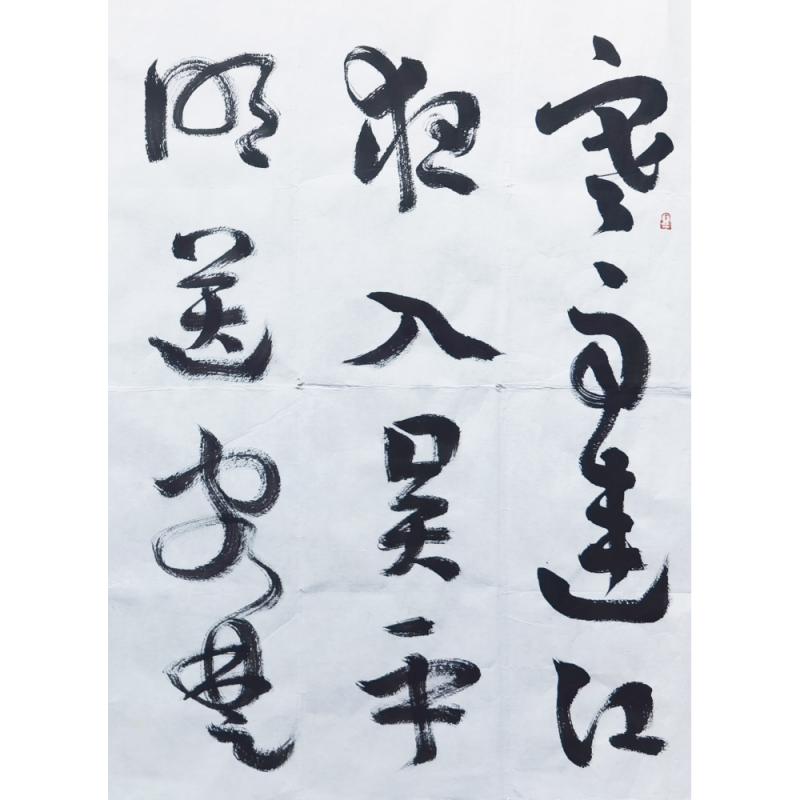 寒雨連江
夜入吳平
明送客楚